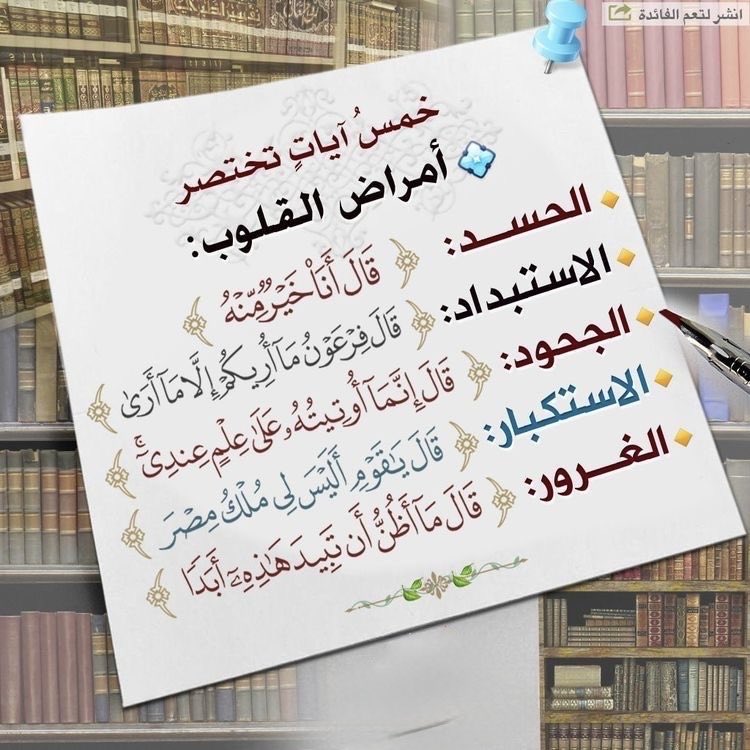 انشر لتعم الفائدة
خمسُ آياتٍ تختصر
أمراض القلوب:
الحسد: ﴿قَالَ أَنَا۠ خَيْرٌ مِّنْهُ﴾
الاستبداد: ﴿قَالَ فِرْعَوْنُ مَآ أُرِيكُمْ إِلَّا مَآ أَرَىٰ﴾
الجحود: ﴿قَالَ إِنَّمَآ أُوتِيتُهُۥ عَلَىٰ عِلْمٍ عِندِىٓ ۚ﴾
الاستكبار: ﴿قَالَ يَٰقَوْمِ أَلَيْسَ لِى مُلْكُ مِصْرَ﴾
الغرور: ﴿قَالَ مَآ أَظُنُّ أَن تَبِيدَ هَٰذِهِۦٓ أَبَدًا﴾